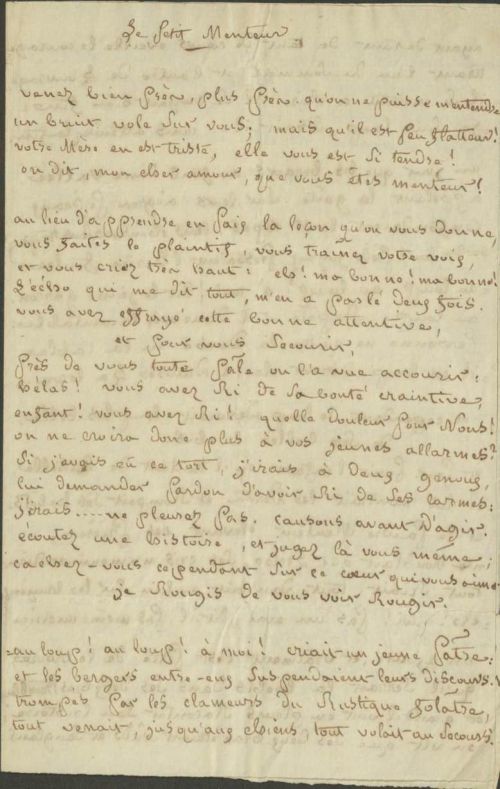 Le Petit Menteur
venez bien près, plus près. qu'on ne puisse m'entendre
un bruit vole sur vous; mais qu'il est peu flatteur!
votre Mère en est triste, elle vous est si tendre!
on dit, mon cher amour, que vous êtes menteur!
au lieu d'apprendre en paix la leçon qu'on vous donne,
vous faites le plaintif, vous traînez votre voix,
et vous criez très haut: eh! ma bonne! ma bonne!
L'écho qui me dit tout, m'en a parlé deux fois.
vous avez effrayé cette bonne attentive,
et pour vous secourir,
Près de vous toute pâle on l'a vue accourir;
hélas! vous avez Ri de sa bonté craintive,
enfant! vous avez Ri! quelle douleur pour Nous!
on ne croira donc plus à vos jeunes allarmes?
Si j'avais eû ce tort, j'irais à deux genoux,
lui demander pardon d'avoir Ri de ses larmes;
j'irais..... ne pleurez pas. causons avant D'agir.
écoutez une histoire, et jugez là vous même;
cachez-vous cependant sur ce cœur qui vous aime
je Rougis de vous voir Rougir.
au loup! au loup! à moi! criait un jeune pâtre;
et les bergers entre-eux suspendaient leurs discours.
trompés par les clameurs du Rustique folâtre,
tout venait, jusqu'aux chiens, tout volait au secours.